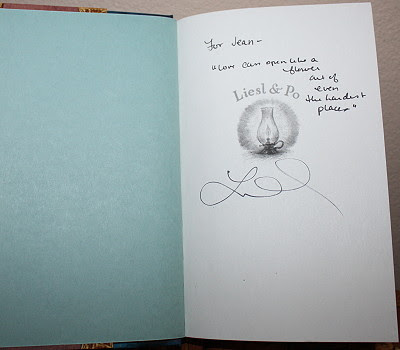 For Jean-
"Love can open like a
flower
out of
even
the hardest
places"
Liesl & Po